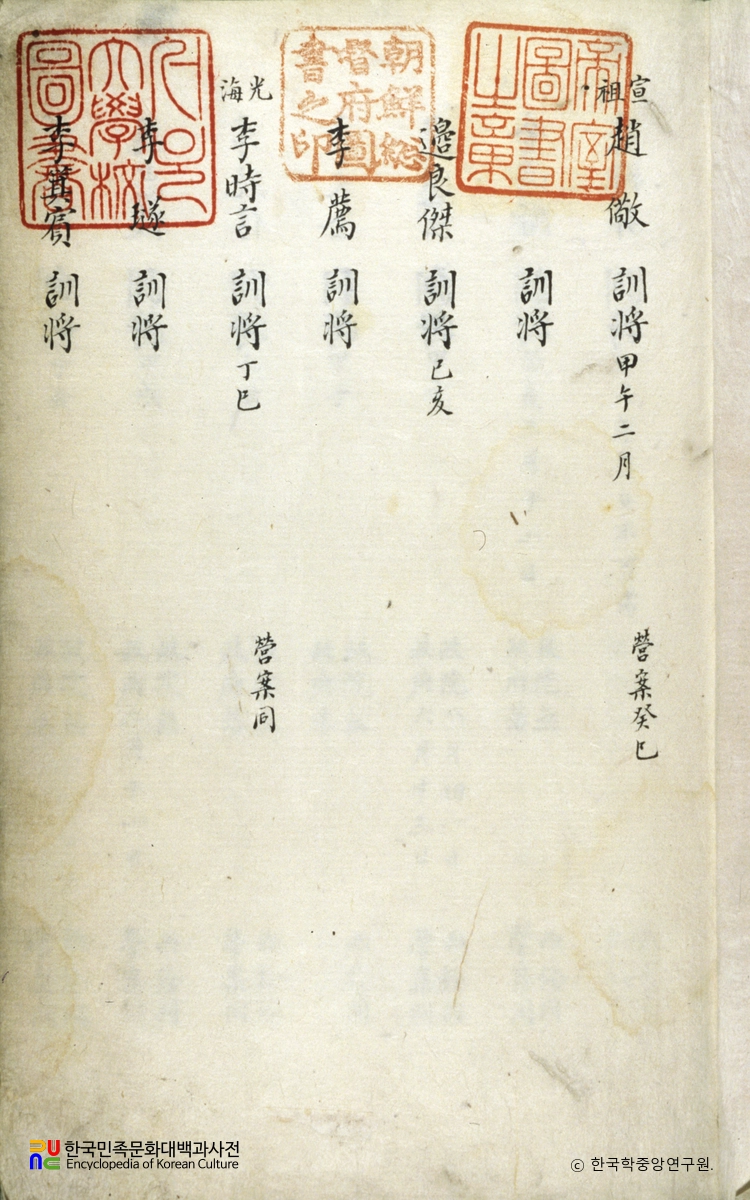 宣祖
趙儆 訓将 甲午二月 營案癸巳
訓将
邊良傑 訓将 己亥
李薦 訓将
光海
李時言 訓将 丁巳 營案同
李 訓将
李箕賓 訓将
帝室圖書之章
朝鮮總督府圖書之印
大學校圖書
한국민족문화대백과사전
Encyclopedia of Korean Culture
ⓒ 한국학중앙연구원.